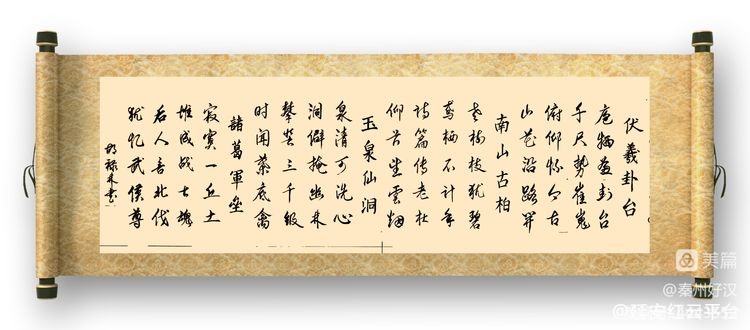 伏羲卦台
庖犧画卦台
千尺势崔嵬
俯仰怀今古
山花沿路开
南山古柏
老树枝犹碧
鸾栖不计年
诗篇传老杜
仰首望雲烟
玉泉仙洞
泉清可洗心
洞僻掩幽林
攀登三千级
时闻叶底禽
諸葛軍壘
寂寞一丘土
堆成战士魂
后人言北伐
犹忆武侯尊
美篇
@秦州好汉
@延安红云平台